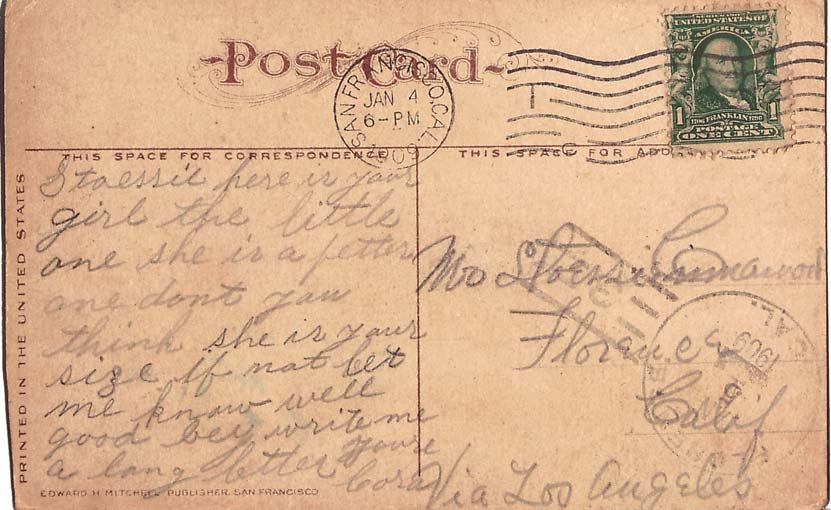 Post Card
SAN FRANCISCO, CAL.
JAN 4
6-PM
1909
SERIES 1902
UNITED STATES OF
AMERICA
1 1706 FRANKLIN 1790 1
POSTAGE
ONE CENT
THIS SPACE FOR CORRESPONDENCE
THIS SPACE FOR ADD
PRINTED IN THE UNITED STATES
Stoessie here is your
girl the little
one she is a petter
one dont you
think she is your
size if not let
me know well
good bey write me
a long letter youre
Cora
Florence
Calif
Via Los Angeles
1909
CAL.
EDWARD H MITCHELL PUBLISHER, SAN FRANCISCO